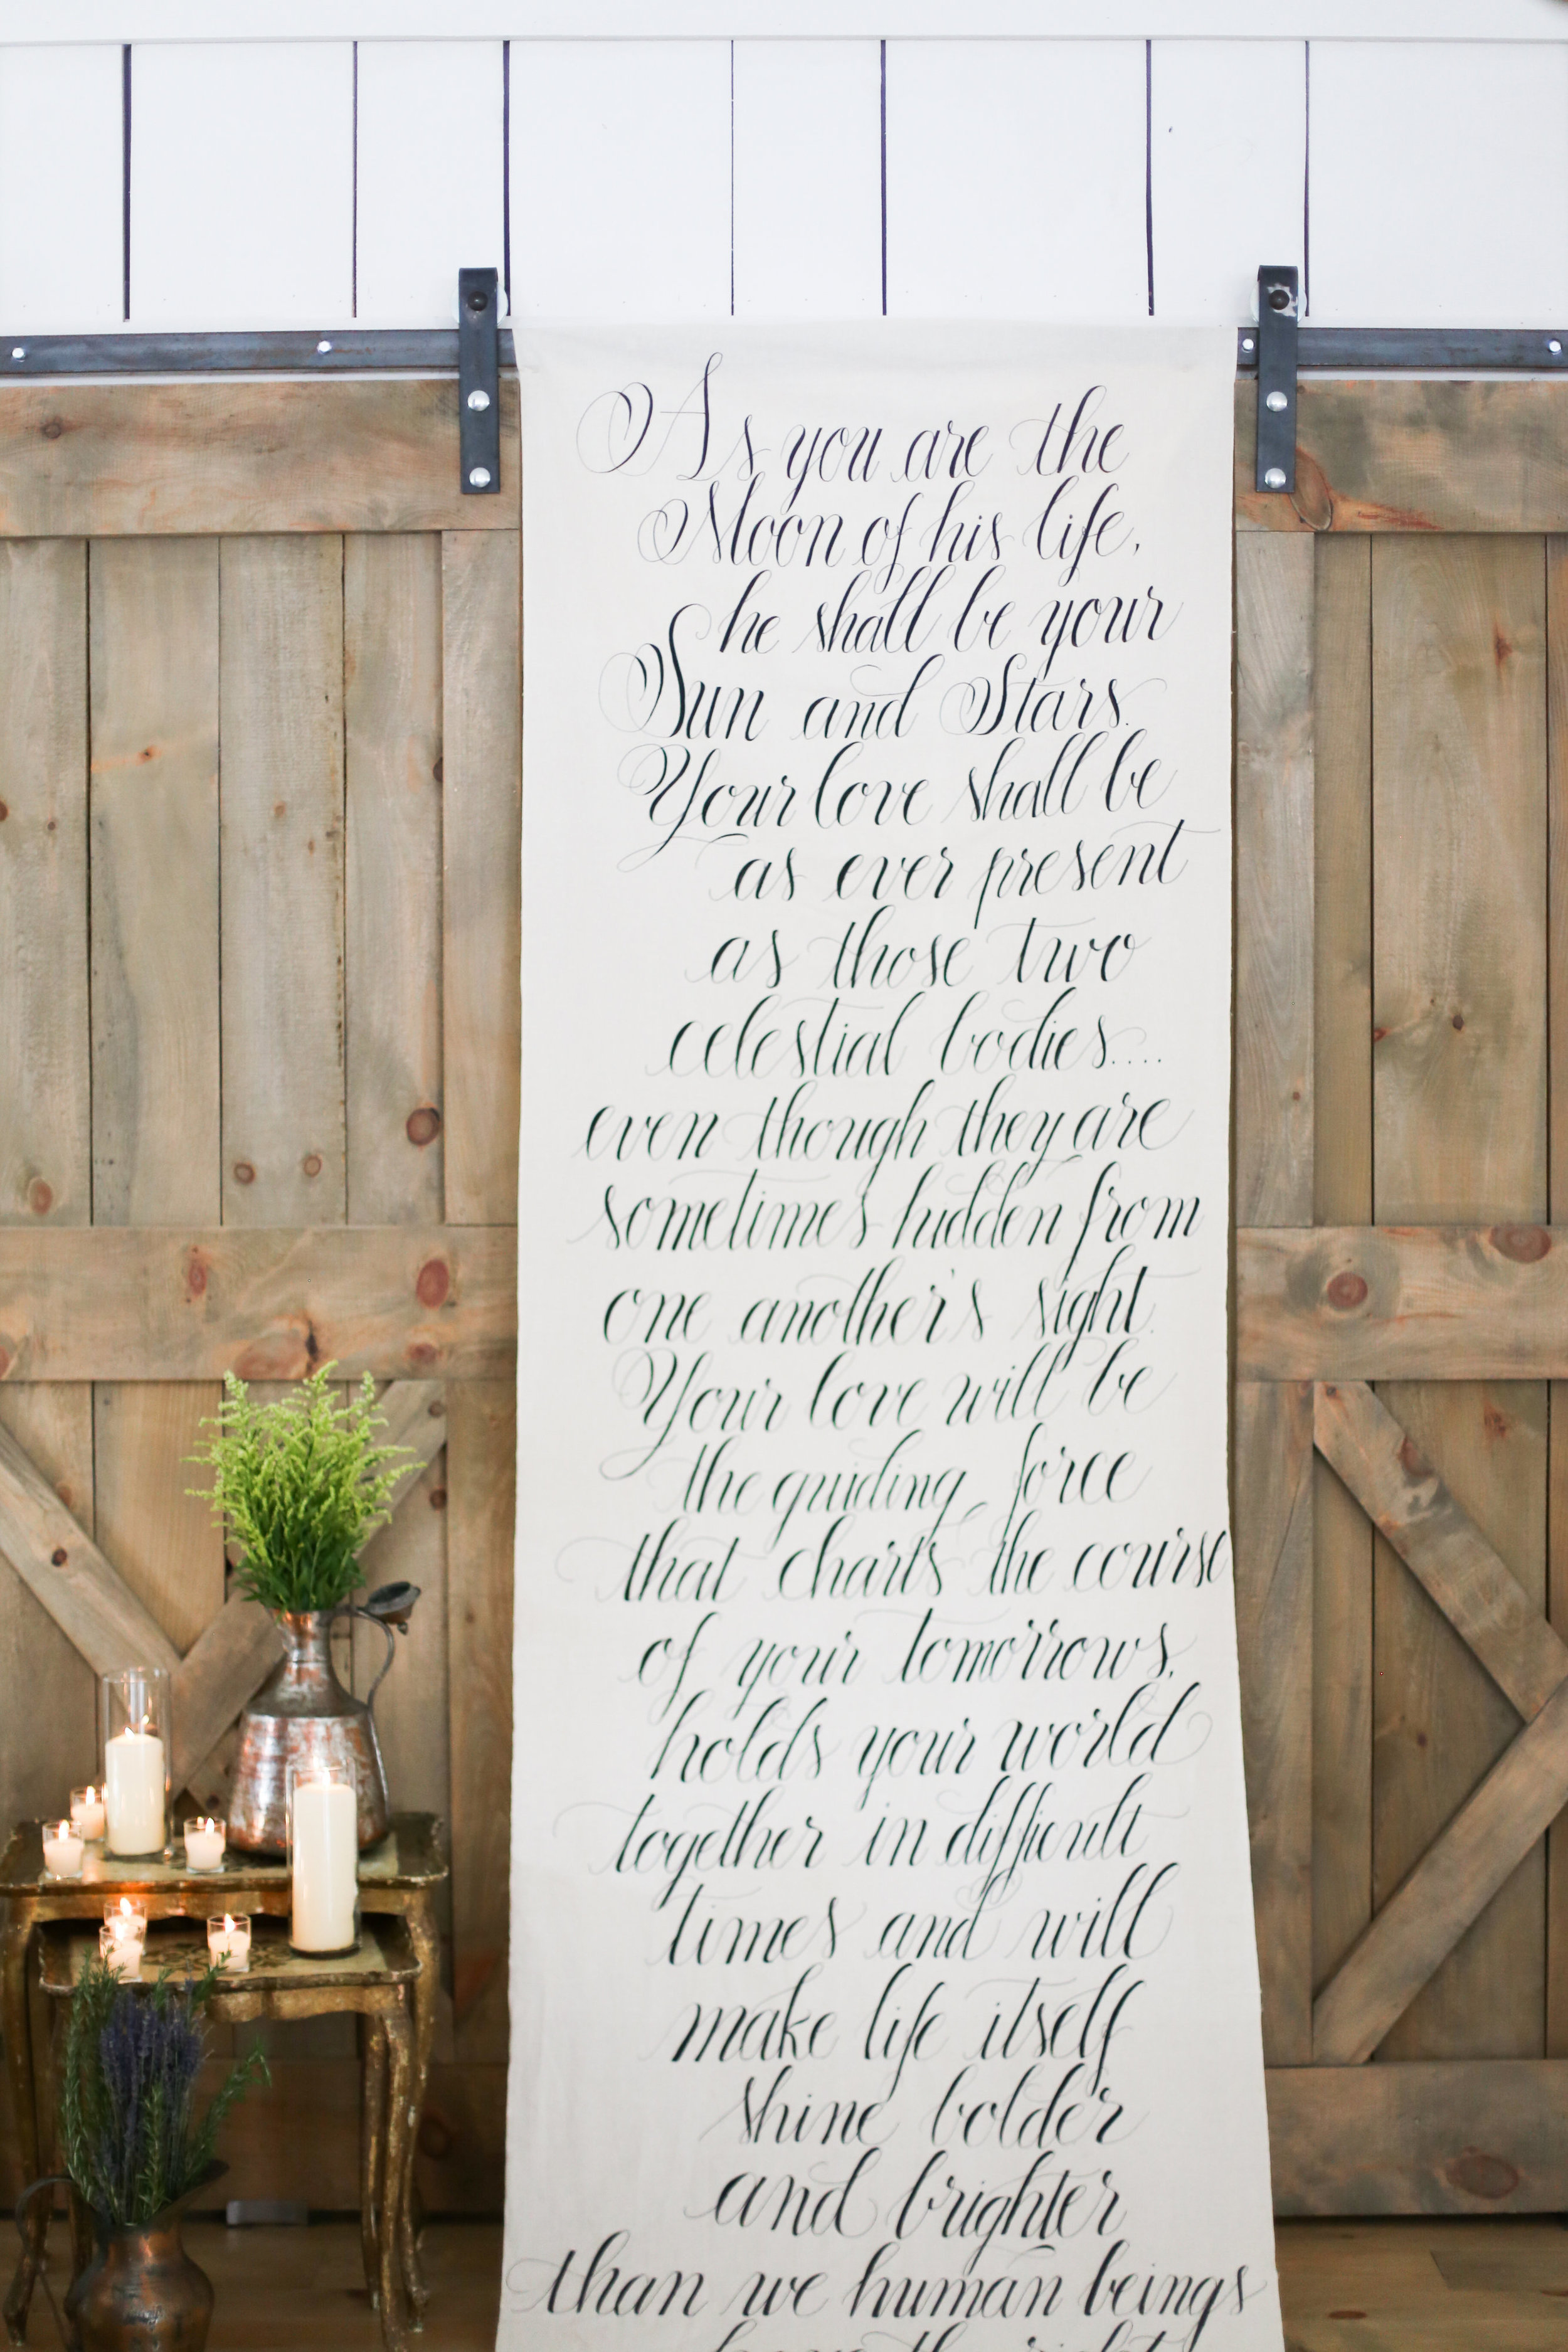 As you are the
Moon of his life,
he shall be your
Sun and Stars.
Your love shall be
as ever present
as those two
celestial bodies....
even though they are
sometimes hidden from
one another's sight.
Your love will be
the guiding force
that charts the course
of your tomorrows,
holds your world
together in difficult
times and will
make life itself
shine bolder
and brighter
than we human beings
have the right